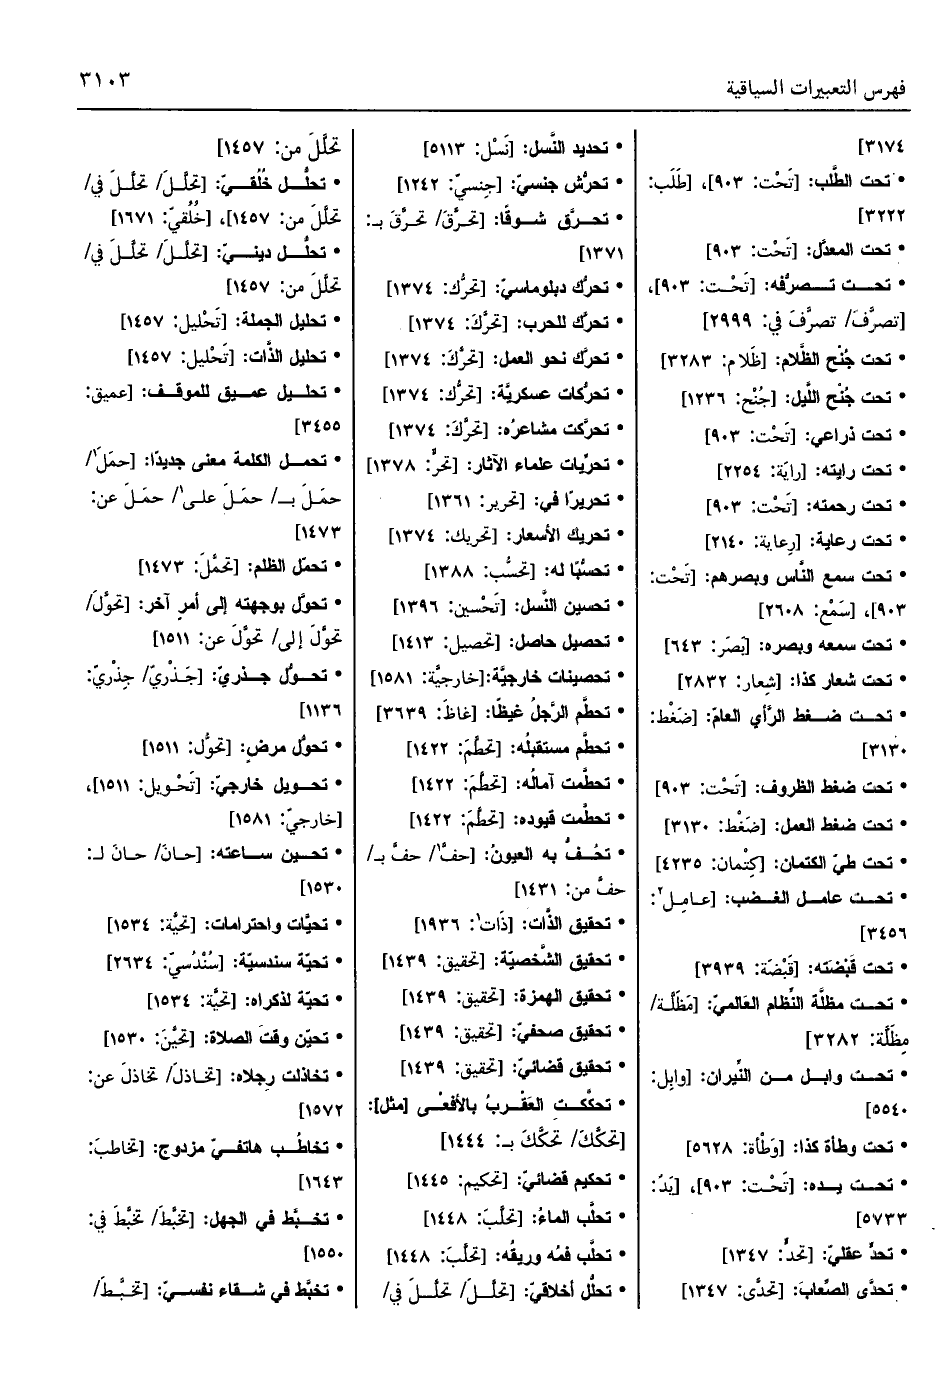 فهرس التعبيرات السياقية
٣١٠٣
٣١٧٤]
• تحت الطَّلب: [تَحْت: ٩٠٣]، [طَلَب:
٣٢٢٢]
• تحت المعدّل: [تَحْت: ٩٠٣]
• تحـــت تـــصرُّفه: [تَحْـت: ٩٠٣]،
[تصرَّفَ/ تصرَّفَ في: ٢٩٩٩]
• تحت جُنْح الظَّلام: [ظَلام: ٣٢٨٣]
• تحت جُنْح اللَّيل: [جُنْح: ١٢٣٦]
• تحت ذراعي: [تَحْت: ٩٠٣]
• تحت رايته: [رايَة: ٢٢٥٤]
• تحت رحمته: [تَحْت: ٩٠٣]
• تحت رعاية: [رِعاية: ٢١٤٠]
• تحت سمع النَّاس وبصرهم: [تَحْت:
٩٠٣]، [سَمْع: ٢٦٠٨]
• تحت سمعه وبصره: [بَصَر: ٦٤٣]
• تحت شعار كذا: [شِعار: ٢٨٣٢]
• تحـــت ضـــغط الرَّأي العامّ: [ضَغْط:
٣١٣٠]
• تحت ضغط الظروف: [تَحْت: ٩٠٣]
• تحت ضغط العمل: [ضَغْط: ٣١٣٠]
• تحت طيّ الكتمان: [كِتْمان: ٤٢٣٥]
• تحـــت عامـــل الغـــضب: [عـامِـل٢:
٣٤٥٦]
• تحت قَبْضَته: [قَبْضَة: ٣٩٣٩]
• تحـــت مظلَّة النِّظام العالميّ: [مَظَلَّة/
مِظَلَّة: ٣٢٨٢]
• تحـــت وابـــل مـــن النِّيران: [وابِل:
٥٥٤٠]
• تحت وطأة كذا: [وَطْأة: ٥٦٢٨]
• تحـــت يـــده: [تَحْـت: ٩٠٣]، [يَدٌ:
٥٧٣٣]
• تحدٍّ عقليّ: [تحدٍّ: ١٣٤٧]
• تحدَّى الصِّعابَ: [تحدَّى: ١٣٤٧]
• تحديد النَّسل: [نَسْل: ٥١١٣]
• تحرُّش جنسيّ: [جِنسيّ: ١٢٤٢]
• تحـــرَّق شـــوقًا: [تحرَّقَ/ تحرَّقَ بـ:
١٣٧١]
• تحرُّك دبلوماسيّ: [تحرُّك: ١٣٧٤]
• تحرَّك للحرب: [تحرَّكَ: ١٣٧٤]
• تحرَّك نحو العمل: [تحرَّكَ: ١٣٧٤]
• تحرُّكات عسكريَّة: [تحرُّك: ١٣٧٤]
• تحرَّكت مشاعرُه: [تحرَّكَ: ١٣٧٤]
• تحرِّيات علماء الآثار: [تحرٍّ: ١٣٧٨]
• تحريرًا في: [تحرير: ١٣٦١]
• تحريك الأسعار: [تحريك: ١٣٧٤]
• تحسُّبًا له: [تحسُّب: ١٣٨٨]
• تحسين النَّسل: [تَحْسين: ١٣٩٦]
• تحصيل حاصل: [تحصيل: ١٤١٣]
• تحصينات خارجيَّة: [خارجيَّة: ١٥٨١]
• تحطَّم الرَّجلُ غيظًا: [غاظَ: ٣٦٣٩]
• تحطَّم مستقبلُه: [تحطَّمَ: ١٤٢٢]
• تحطَّمت آمالُه: [تحطَّمَ: ١٤٢٢]
• تحطَّمت قيوده: [تحطَّمَ: ١٤٢٢]
• تحُفُّ به العيونُ: [حفَّ١/ حفَّ بـ/
حفَّ من: ١٤٣١]
• تحقيق الذَّات: [ذَات١: ١٩٣٦]
• تحقيق الشَّخصيَّة: [تحقيق: ١٤٣٩]
• تحقيق الهمزة: [تحقيق: ١٤٣٩]
• تحقيق صحفيّ: [تحقيق: ١٤٣٩]
• تحقيق قضائيّ: [تحقيق: ١٤٣٩]
• تحكَّكـــت العَقْـــربُ بالأفعـــى [مثل]:
[تحكَّكَ/ تحكَّكَ بـ: ١٤٤٤]
• تحكيم قضائيّ: [تحكيم: ١٤٤٥]
• تحلَّب الماءُ: [تحلَّبَ: ١٤٤٨]
• تحلَّب فمُه وريقُه: [تحلَّبَ: ١٤٤٨]
• تحلُّل أخلاقيّ: [تحلَّــلَ/ تحلَّــلَ في/
تحلَّلَ من: ١٤٥٧]
• تحلُّـــل خُلُقـــيّ: [تحلَّــلَ/ تحلَّــلَ في/
تحلَّلَ من: ١٤٥٧]، [خُلُقيّ: ١٦٧١]
• تحلُّـــل دينـــيّ: [تحلَّــلَ/ تحلَّــلَ في/
تحلَّلَ من: ١٤٥٧]
• تحليل الجملة: [تَحْليل: ١٤٥٧]
• تحليل الذَّات: [تَحْليل: ١٤٥٧]
• تحلـــيل عمـــيق للموقـــف: [عميق:
٣٤٥٥]
• تحمـــل الكلمة معنى جديدًا: [حمَلَ١/
حمَلَ بـ/ حمَلَ على١/ حمَلَ عن:
١٤٧٣]
• تحمّل الظلم: [تحمَّلَ: ١٤٧٣]
• تحوَّل بوجهته إلى أمرٍ آخر: [تحوَّلَ/
تحوَّلَ إلى/ تحوَّلَ عن: ١٥١١]
• تحـــوُّل جـــذري: [جَـذْريّ/ جِذْريّ:
١١٣٦]
• تحوُّل مرضٍ: [تحوُّل: ١٥١١]
• تحـــويل خارجيّ: [تَحْـويل: ١٥١١]،
[خارجيّ: ١٥٨١]
• تحـــين ســـاعته: [حـانَ/ حـانَ لـ:
١٥٣٠]
• تحيَّات واحترامات: [تحيَّة: ١٥٣٤]
• تحيّة سندسيّة: [سُنْدُسيّ: ٢٦٣٤]
• تحيّة لذكراه: [تحيَّة: ١٥٣٤]
• تحيّن وقتَ الصلاة: [تحيَّنَ: ١٥٣٠]
• تخاذلت رجلاه: [تخـاذلَ/ تخاذلَ عن:
١٥٧٢]
• تخاطُـــب هاتفـــيّ مزدوج: [تخاطبَ:
١٦٤٣]
• تخـــبَّط في الجهل: [تخبَّطَ/ تخبَّطَ في:
١٥٥٠]
• تخبَّط في شـــقاء نفســـيّ: [تخـبَّـطَ/